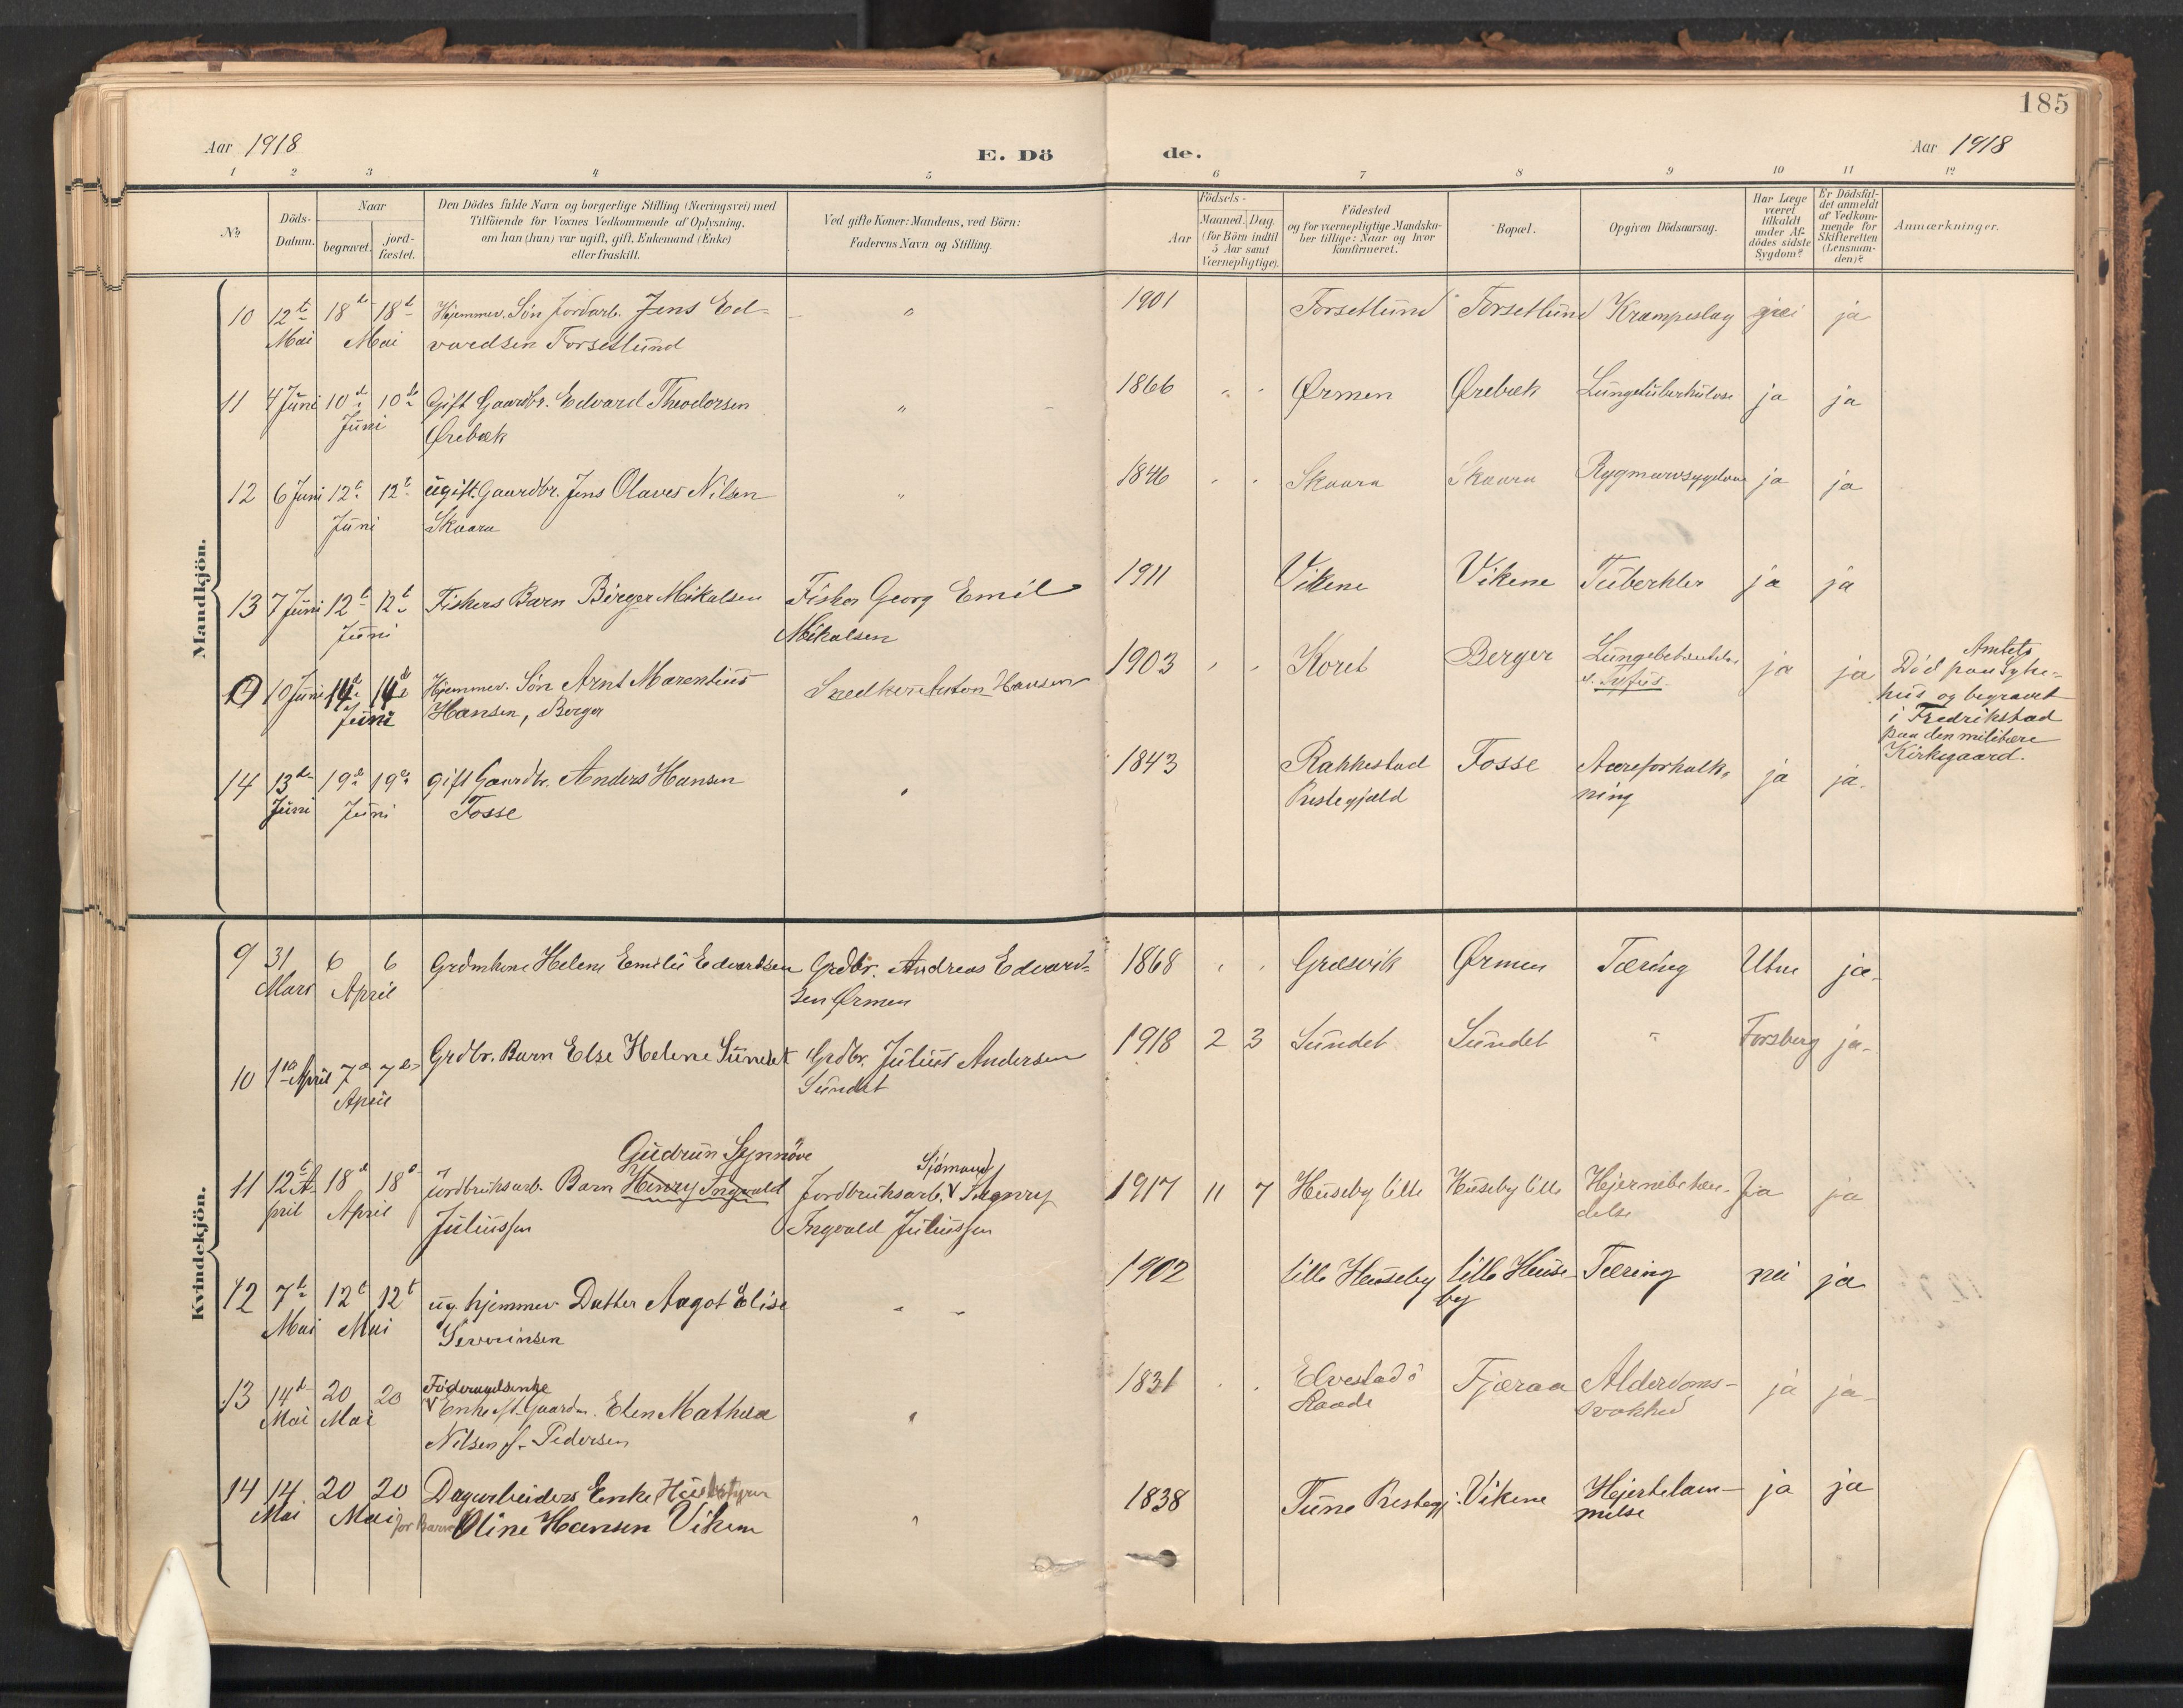 185
Aar 1918
E. Dö
de.
Aar 1918
1 2 3 4 5 6 7 8 9 10 11 12
No
Döds-
Datum.
Naar
begravet.
jord-
fæstet.
Den Dödes fulde Navn og borgerlige Stilling (Næringsvei) med
Tilföiende for Voxnes Vedkommende af Oplysning,
om han (hun) var ugift, gift, Enkemand (Enke)
eller fraskilt.
Ved gifte Koner: Mandens, ved Börn:
Faderens Navn og Stilling.
Födsels-
Aar
Maaned. Dag.
(for Börn indtil
5 Aar samt
Værnepligtige).
Födested
og for værnepligtige Mandska-
ber tillige: Naar og hvor
konfirmeret.
Bopæl.
Opgiven Dödsaarsag.
Har Læge
været
tilkaldt
under Af-
dödes sidste
Sygdom?
Er Dödsfal-
det anmeldt
af Vedkom-
mende for
Skifteretten
(Lensman-
den)?
Anmærkninger.
Mandkjön.
10 12te 18de 18de Hjemmev. Søn Jordarb. Jens Ed- " 1901 Forsetlund Forsetlund Krampeslag ja
Mai Mai vardsen Forsetlund
11 4 Juni 10de 10de Gift Gaardbr. Edvard Theodorsen " 1866 " " Ørmen Ørebæk Lungetuberkulose ja ja
Juni Ørebæk
12 6 Juni 12te 12te ugift Gaardbr. Jens Olaves Nilsen " 1846 " " Skaara Skaara Rygmarvssygdom ja ja
Juni Skaara
13 7 Juni 12te 12te Fiskers Barn Birger Mikalsen Fisker Georg Emil 1911 Vikene Vikene Tuberkler ja ja
Juni Mikalsen
10 Juni 14de 14de Hjemmev. Søn Arnt Marentius Snedker Anton Hansen 1903 " " Koret Berger ja ja
Juni Hansen, Berger
Amtets
Død paa Syke-
hus og begravet
i Fredrikstad
paa den militære
Kirkegaard.
14 13de 19de 19de gift Gaardbr. Anders Hansen " 1843 Rakkestad Fosse Aareforkalk- ja ja.
Juni Juni Fosse Prestegjæld ning
Kvindekjön.
9 31 6 6 Helene Emilie Edvardsen Grdbr. Andreas Edvard- 1868 " " Græsvik Ørmen Tæring Utne ja
Mars April sen Ørmen
10 1ste April 7de 7de Grdbr. Barn Else Helene Sundet Grdbr. Julius Andersen 1918 2 3 Sundet Sundet " Forsberg ja
April Sundet
Gudrun Synnöve Sjömand
11 12te A- 18de 18de Jordbruksarb. Barn Henry Ingvald Jordbruksarb. V 1917 11 7 Huseby lille Huseby lille Hjernebetæn- Ja ja
pril April Juliussen Ingvald Juliussen delse
12 7de 12te 12te ug. hjemmev. Datter Aagot Elise " " 1902 lille Huseby lille Huse- Tæring nei ja
Mai Mai Severinsen by
Föderaadsenke
13 14de 20 20 V Enke eft. Gaardm. Elen Mathea " 1831 " " Elvestad i Fjæraa Alderdoms- ja ja
Mai Mai Nilsen f. Pedersen Raade svakhed
14 14 20 20 Dagarbeiders Enke 1838 Tune Prestegj. Vikene Hjertelam- ja ja
Mai Mai for Barn Oline Hansen Vikene " melse